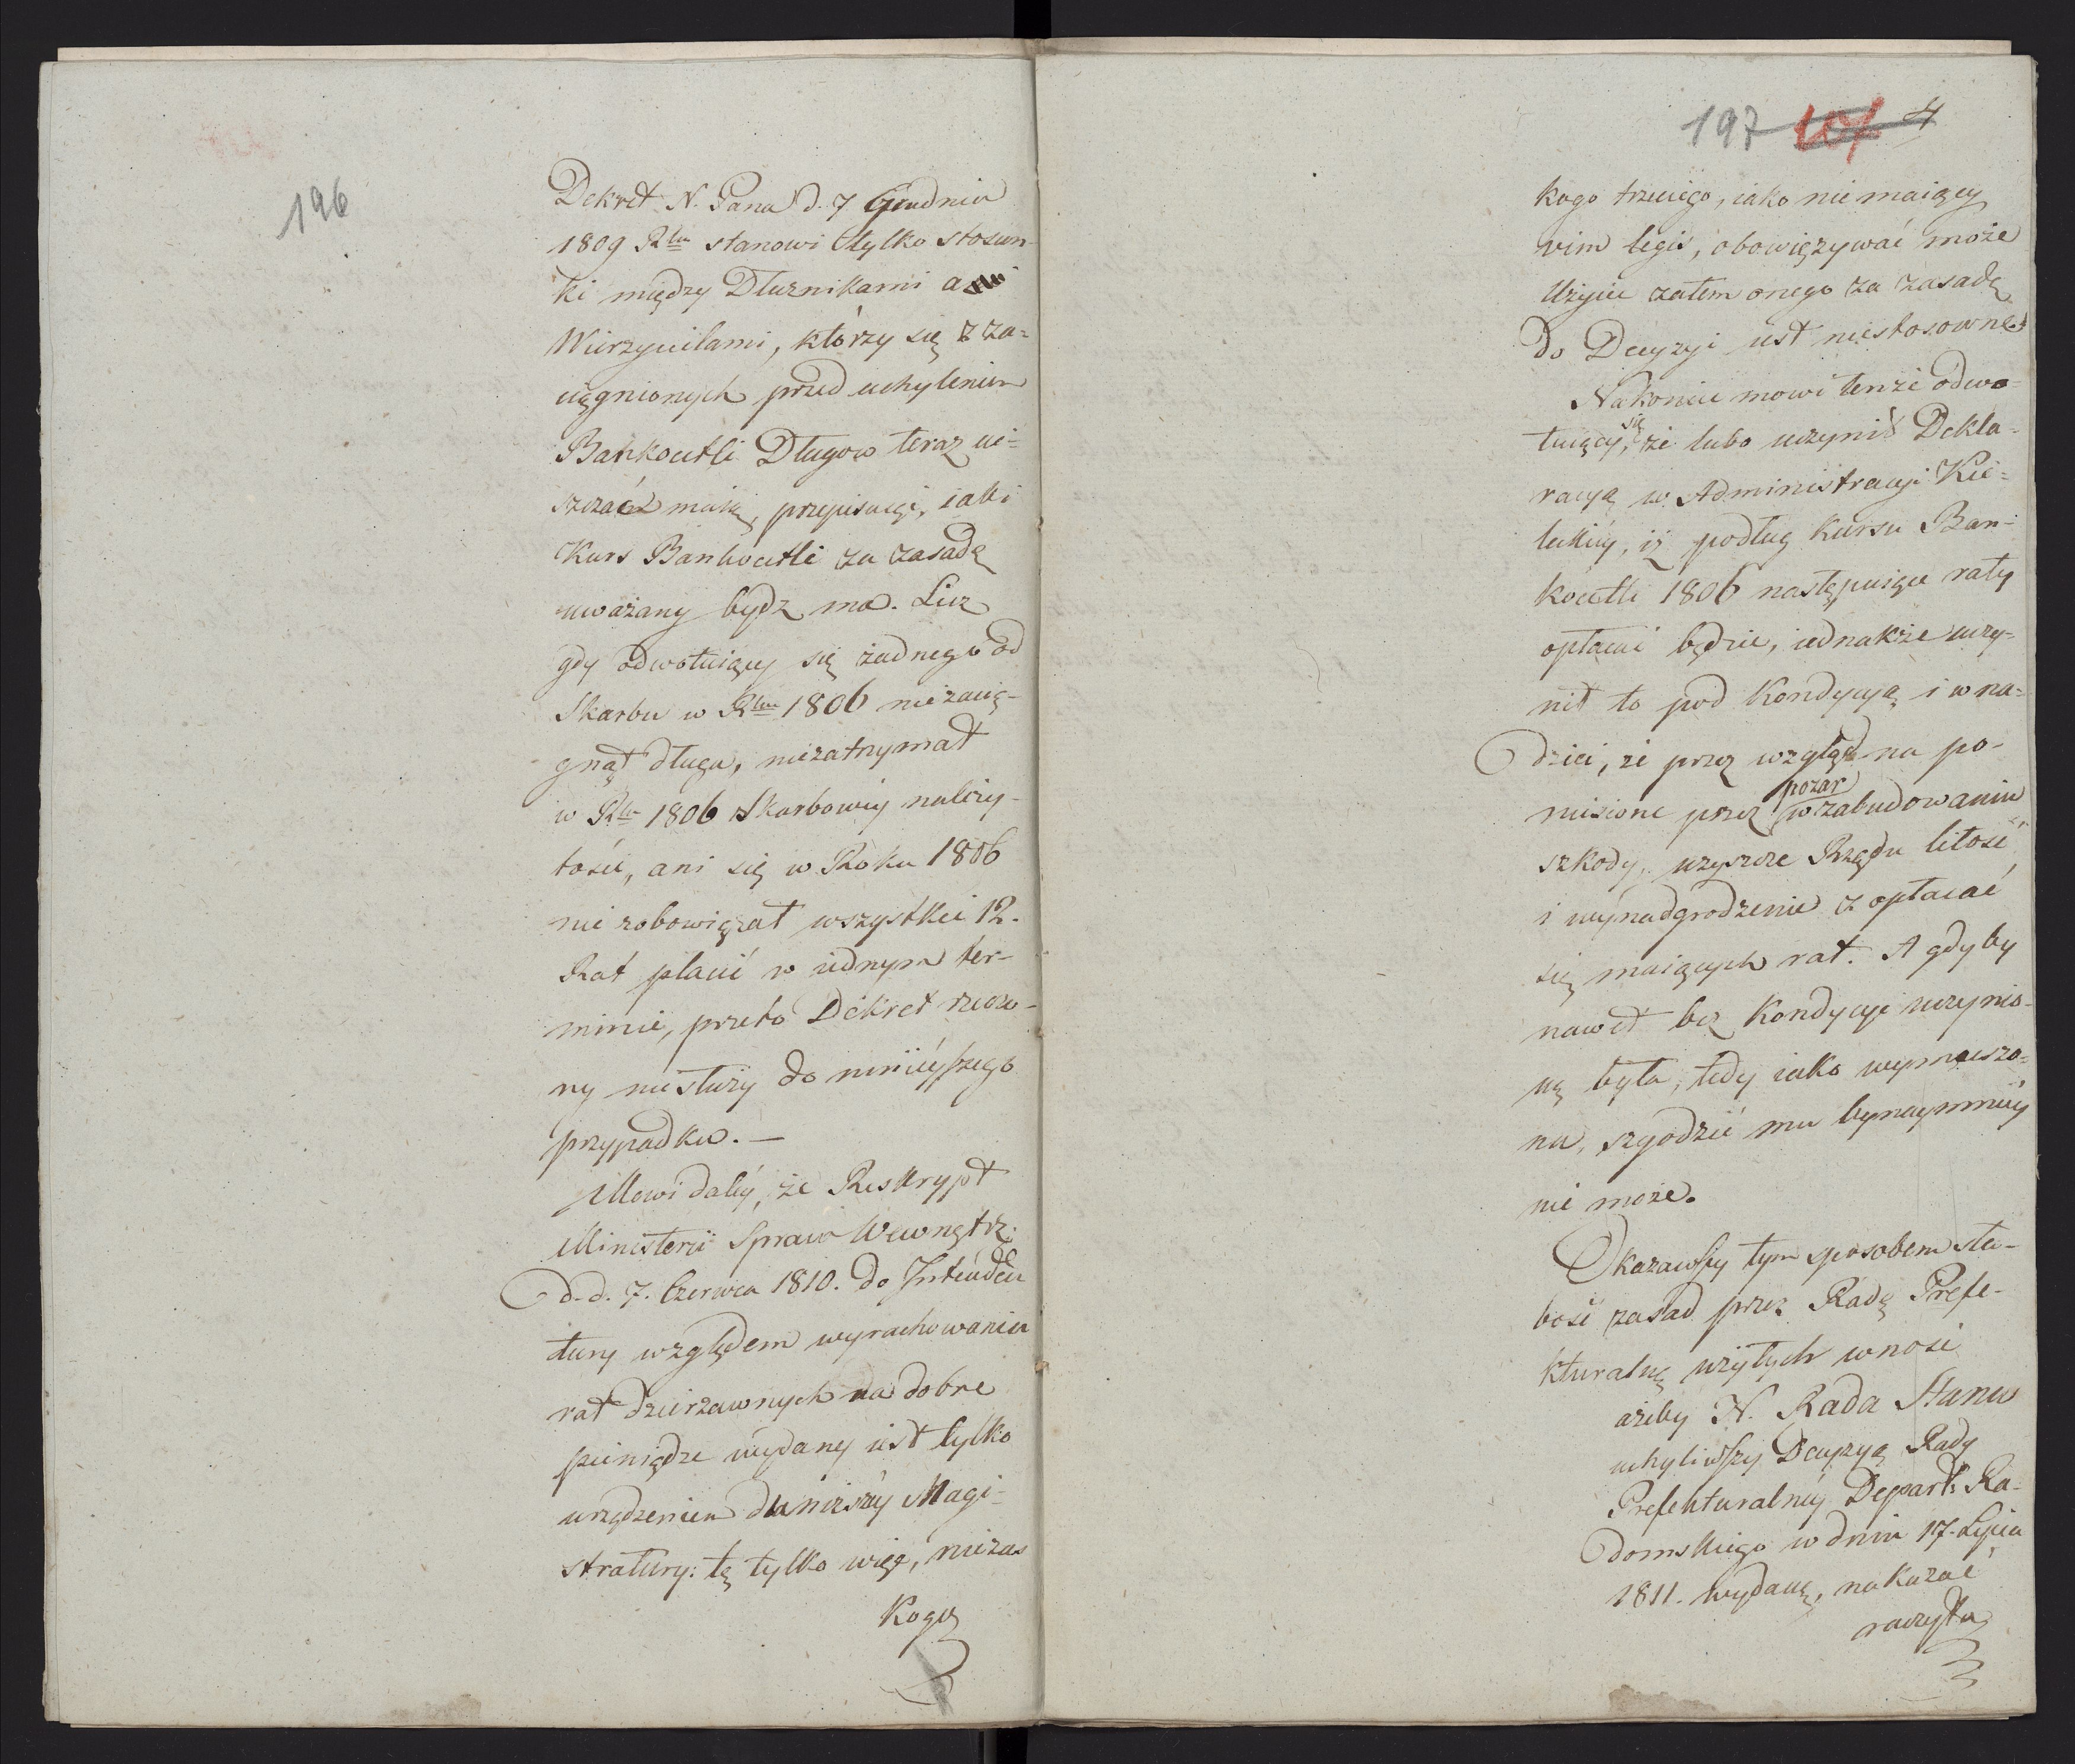 196
Dekret N. Pana d. 7 Grudnia
1809 Rku stanowi tylko stosun-
ki między Dłużnikami a
Wierzycielami, którzy się z za-
ciągnionych przed uchyleniem
Bankocetli Długow teraz ui-
szczać maią, przepisuiąc, iaki
Kurs Bankocetli za zasadę
uważany bydz ma. Lecz
gdy odwołuiący się żadnego od
Skarbu w Rku 1806 niezacią-
gnął długu, niezatrzymał
w Rku 1806 Skarbowey należy-
tości, ani się w Roku 1806
nie zobowiązał wszystkie 12.
Rat płacić w iednym ter-
minie, przeto Dekret rzeczo-
ny niesłuży do ninieyszego
przypadku. —
Mowi daléy, że Reskrypt
Ministerii Spraw Wewnętrz:
d.d. 7. Czerwca 1810. do Intenden
tury względem wyrachowania
rat dzierżawnych na dobre
pieniądze wydany iest tylko
urządzeniem dla niższéy Magi-
stratury: tę tylko więc, niezas
Kogo
197 107 4
kogo trzeciego, iako nie maiący
vim legis, obowięzywać może
Użycie zatem onego za zasadę
do Decyzyi iest niestosowne.
Nakoniec mowi tenże odwo-
łuiący się, że lubo uczynił Dekla-
racyą w Administracyi Kie-
leckiey, iż podług Kursu Ban-
kocetli 1806 następuiące raty
opłacać będzie, iednakże uczy-
nił to pod Kondycyą i w na-
dziei, że przez wzgląd na po-
niesione przez pożar w zabudowaniu
szkody, uzyszcze Rządu litość
i wynadgrodzenie z opłacać
się maiących rat. A gdyby
nawet bez Kondycyi uczynio-
ną była, tedy iako wymuszo-
na, szkodzić mu bynaymniéy
nie może.
Okazawszy tym sposobem sła-
bość zasad przez Radę Prefe-
kturalną użytych wnosi
ażeby N. Rada Stanu
uchyliwszy Decyzyą Rady
Prefekturalnéy Depart: Ra-
domskiego w dniu 17. Lipca
1811. wydaną, nakazać
raczyła